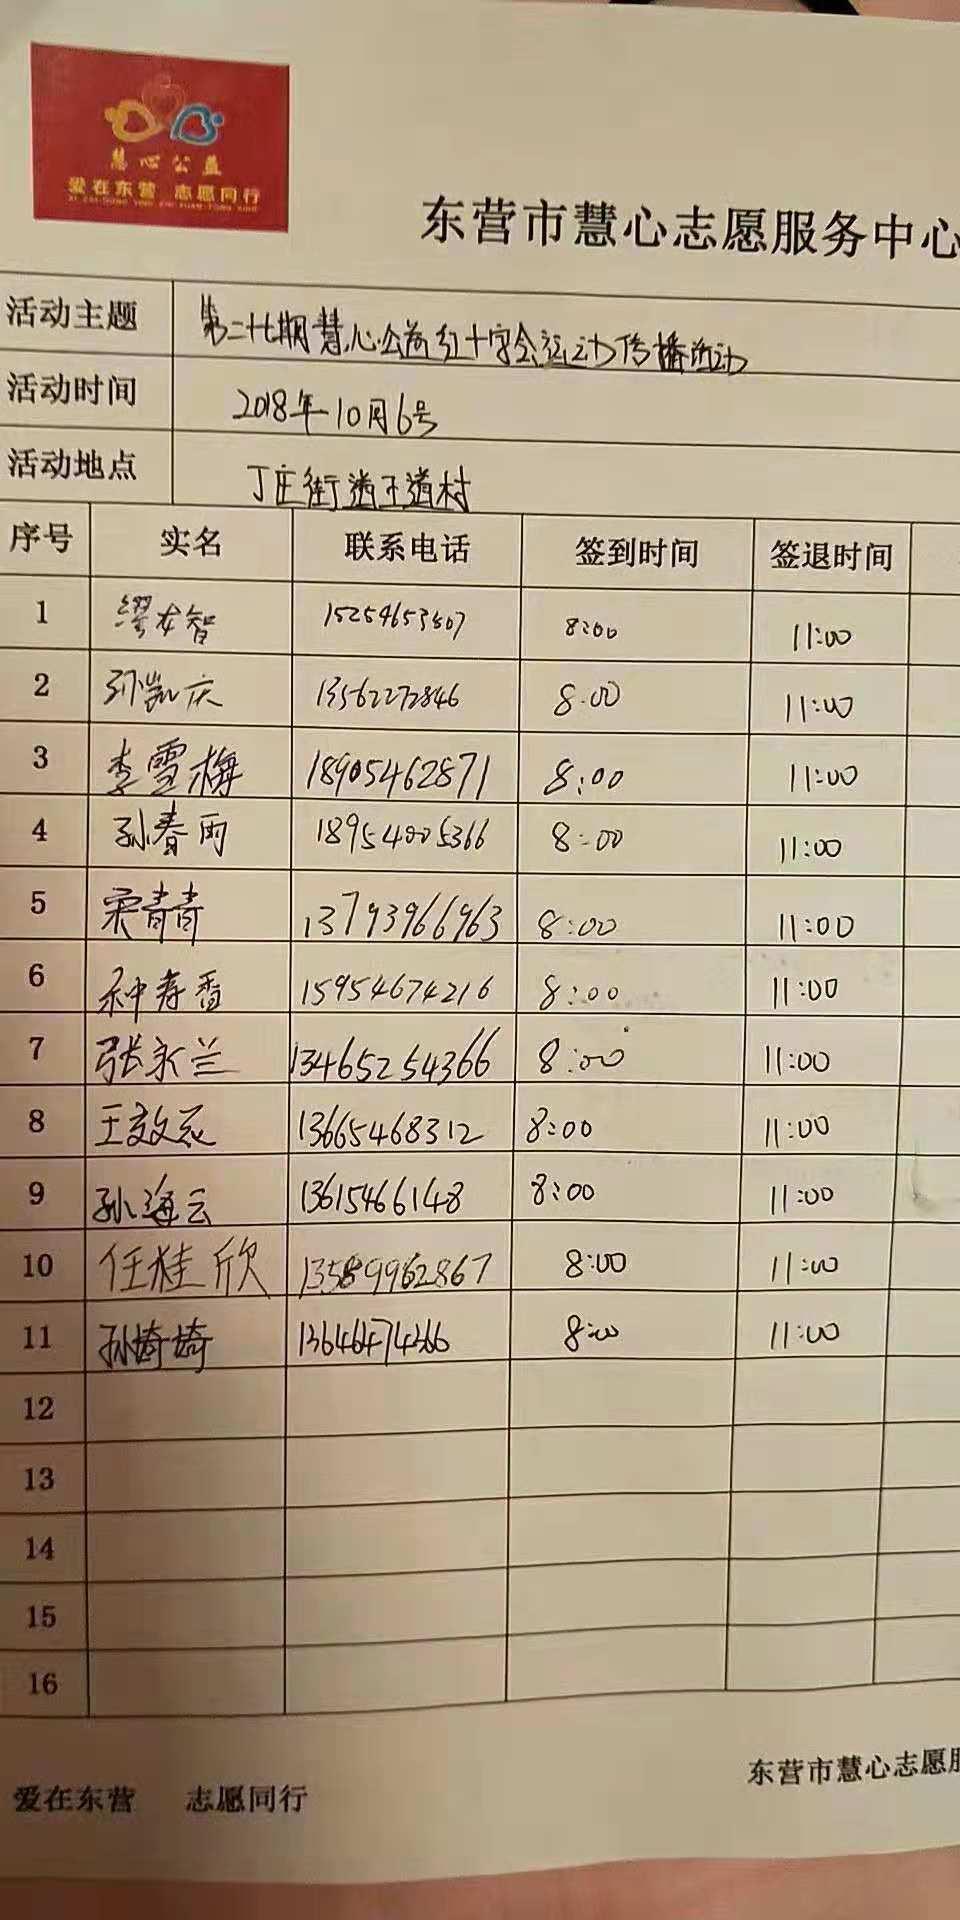 慧心公益
爱在东营 志愿同行
东营市慧心志愿服务中心
活动主题 第二十七期慧心公益红十字会运动传播活动
活动时间 2018年10月6号
活动地点 丁庄街道王道村
序号 实名 联系电话 签到时间 签退时间
1 缪友智 15254653507 8:00 11:00
2 孙凯庆 13562272846 8:00 11:00
3 李雪梅 18905462871 8:00 11:00
4 孙春雨 18954005366 8:00 11:00
5 荣青青 13793966963 8:00 11:00
6 种寿香 15954674216 8:00 11:00
7 张永兰 13465254366 8:00 11:00
8 王效 13665468312 8:00 11:00
9 孙海云 13615466148 8:00 11:00
10 任桂欣 13589962867 8:00 11:00
11 孙婷婷 13646474366 8:00 11:00
12
13
14
15
16
爱在东营 志愿同行
东营市慧心志愿